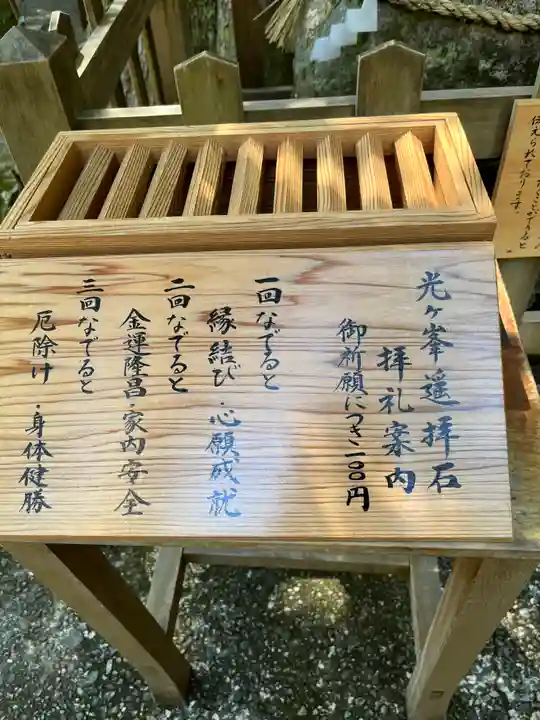 光ヶ峯遥拝石
拝礼案内
御祈願につき一〇〇円
一回なでると
縁結び・心願成就
二回なでると
金運隆昌・家内安全
三回なでると
厄除け・身体健勝
伝えられております。